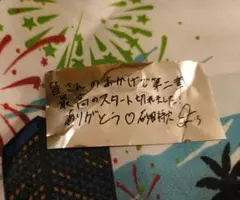 皆さんのおかげで第二章
最高のスタート切れました！
ありがとう♡